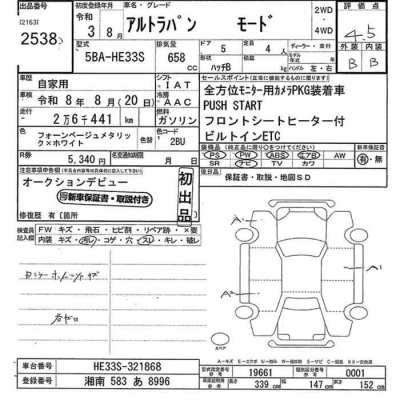 出品番号
[2163]
2538
初度登録年月
令和 3年 8月
車名・グレード
アルトラパン モード
2WD
4WD
評価点
4.5
外装 内装
B B
型式
5BA-HE33S
排気量
658 CC
ドア 5
定員 4人
ハッチB
ハンドル 左・右
ディーラー・並行
車歴 自家用
車検 令和 8年 8月(20日)
走行 2万6千441 km
外装色 フォーンベージュメタリック×ホワイト
カラーNo. 2BU
シフト IAT
冷房 AAC
燃料 ガソリン
R券 5,340 円
名変期限
セールスポイント
全方位モニター用カメラPKG装着車
PUSH START
フロントシートヒーター付
ビルトインETC
装備品
PS PW ABS エアB AW 有・無
SR ナビ TV カワ
後日品 保証書・取説・地図SD
注意事項申告欄
オークションデビュー
新車保証書・取説付き
初出品
修復歴 有(箇所
検査員記入欄
FW キズ・飛石・ヒビ割・リペア跡・×要
内装 キズ・汚レ・コゲ・穴・スレ・キレ・破レ
A1
A1
A1
車台番号 HE33S-321868
登録番号 湘南 583 あ 8996
型式指定番号 19661
類別区分番号 0001
長さ 339 cm
幅 147 cm
高さ 152 cm